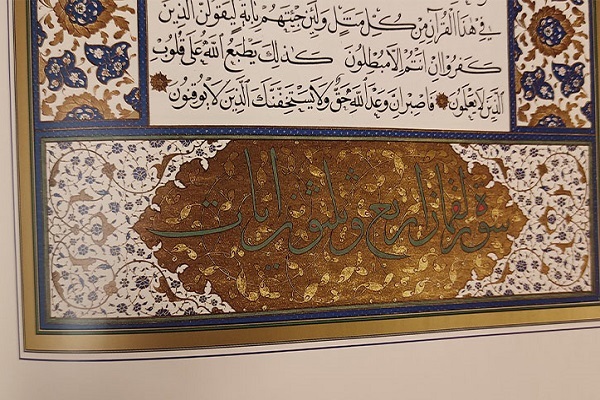 في هذا القرآن من كل مثل ولئن جئتهم بآية ليقولن الذين
كفروا ان انتم الا مبطلون كذلك يطبع الله على قلوب
الذين لا يعلمون فاصبر ان وعد الله حق ولا يستخفنك الذين لا يوقنون
سورة لقمان اربع وثلثون آيات